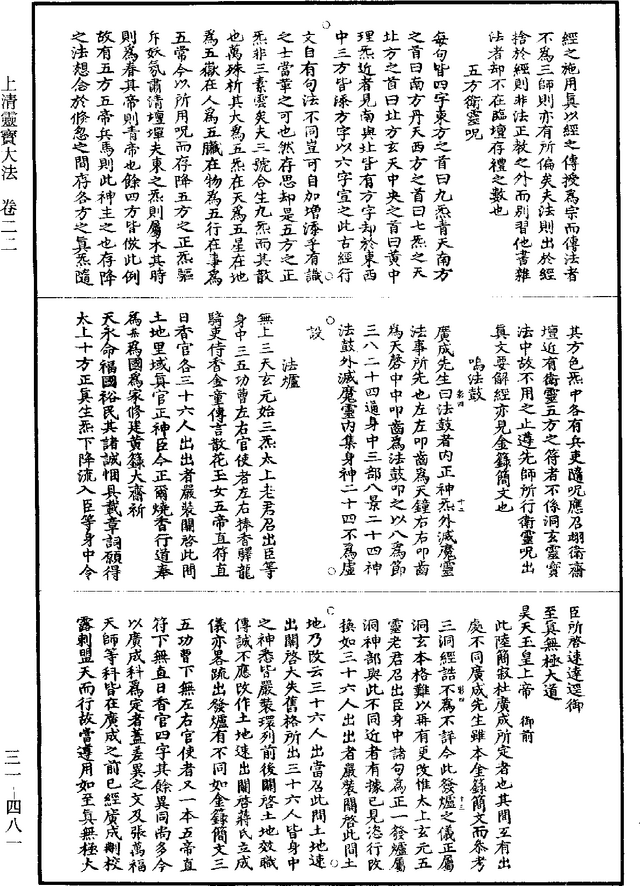 上清靈寶大法 卷二二
三一-四八一
經之施用眞以經之傳授爲宗而傳法者
不爲三師則亦有所偏矣夫法則出於經
捨於經則非法正教之外而別習他書雜
法者却不在臨壇存禮之數也
五方衛靈呪
每句皆四字東方之首曰九炁青天南方
之首曰南方丹天西方之首曰七炁之天
北方之首曰北方玄天中央之首曰黃中
理炁近者見南與北皆有方字却於東西
中三方皆添方字以六字宣之此古經行
文自有句法不同豈可自加增添乎有識
之士當辜之可也然存思却是五方之正
炁非三素雲矣夫三號合生九炁而其散
也萬殊析其大爲五炁在天爲五星在地
爲五嶽在人爲五臟在物爲五行在事爲
五常今以所用呪而存降五方之正炁驅
斥妖氛肅清壇墠夫東之炁則屬木其時
則爲春其帝則青帝也餘四方皆倣此例
故有五方五帝兵馬則此神主之也存降
之法想合於倏忽之間存各方之眞炁隨
其方色炁中各有兵吏隨呪應召翊衛齋
壇近有衛靈五方之符者不係洞玄靈寶
法中故不用之止遵先師所行衛靈呪出
眞文要解經亦見金籙簡文也
鳴法鼓
廣成先生曰法鼓者内正神炁外滅魔靈
法事所先也左左叩齒爲天鐘右右叩齒
爲天磬中中叩齒爲法鼓叩之以八爲節
三八二十四通身中三部八景二十四神
法鼓外滅魔靈内集身神二十四不爲虛
設
法爐
無上三天玄元始三炁太上老君召出臣等
身中三五功曹左右官使者左右捧香驛龍
騎吏侍香金童傳言散花玉女五帝直符直
日香官各三十六人出出者嚴裝關啓此間
土地里域眞官正神臣今正爾燒香行道奉
爲厶爲國爲家修建黃籙大齋祈
天永命福國裕民其諸誠悃具載章詞願得
太上十方正眞生炁下降流入臣等身中令
臣所啓速達逕御
至眞無極大道
昊天玉皇上帝 御前
此陸簡寂杜廣成所定者也其間互有出
處不同廣成先生雖本金籙簡文而參考
三洞經誥不爲不詳今此發爐之儀正屬
洞玄本格難以再有更改惟太上玄元五
靈老君召出臣身中諸句爲正一發爐屬
洞神部與此不同近者有據已見恣行改
換如三十六人出出者嚴裝關啓此間土
地乃改云三十六人出當召此間土地速
出關啓大失舊格所出三十六人皆身中
之神悉皆嚴裝環列前後關啓土地效職
傳誠不應改作土地速出關啓蔣氏立成
儀亦畧疏出發爐有不同如金籙簡文三
五功曹下無左右官使者又一本五帝直
符下無直日香官四字其餘異同尚多今
以廣成科爲定者蓋差異之文及張萬福
天師等科皆在廣成之前已經廣成刪校
露剌盟天而行故當遵用如至眞無極大